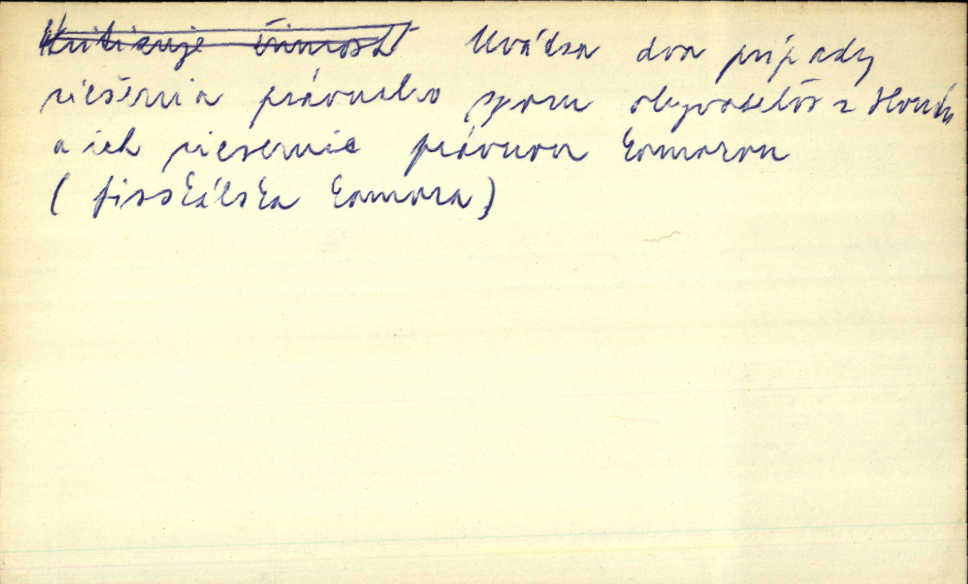 ~~Kritizuje činnosť~~ Uvádza dva prípady
riešenia právneho sporu obyvateľov z Hontu
a ich riesenie právnou komorou
(fisskálska komora)